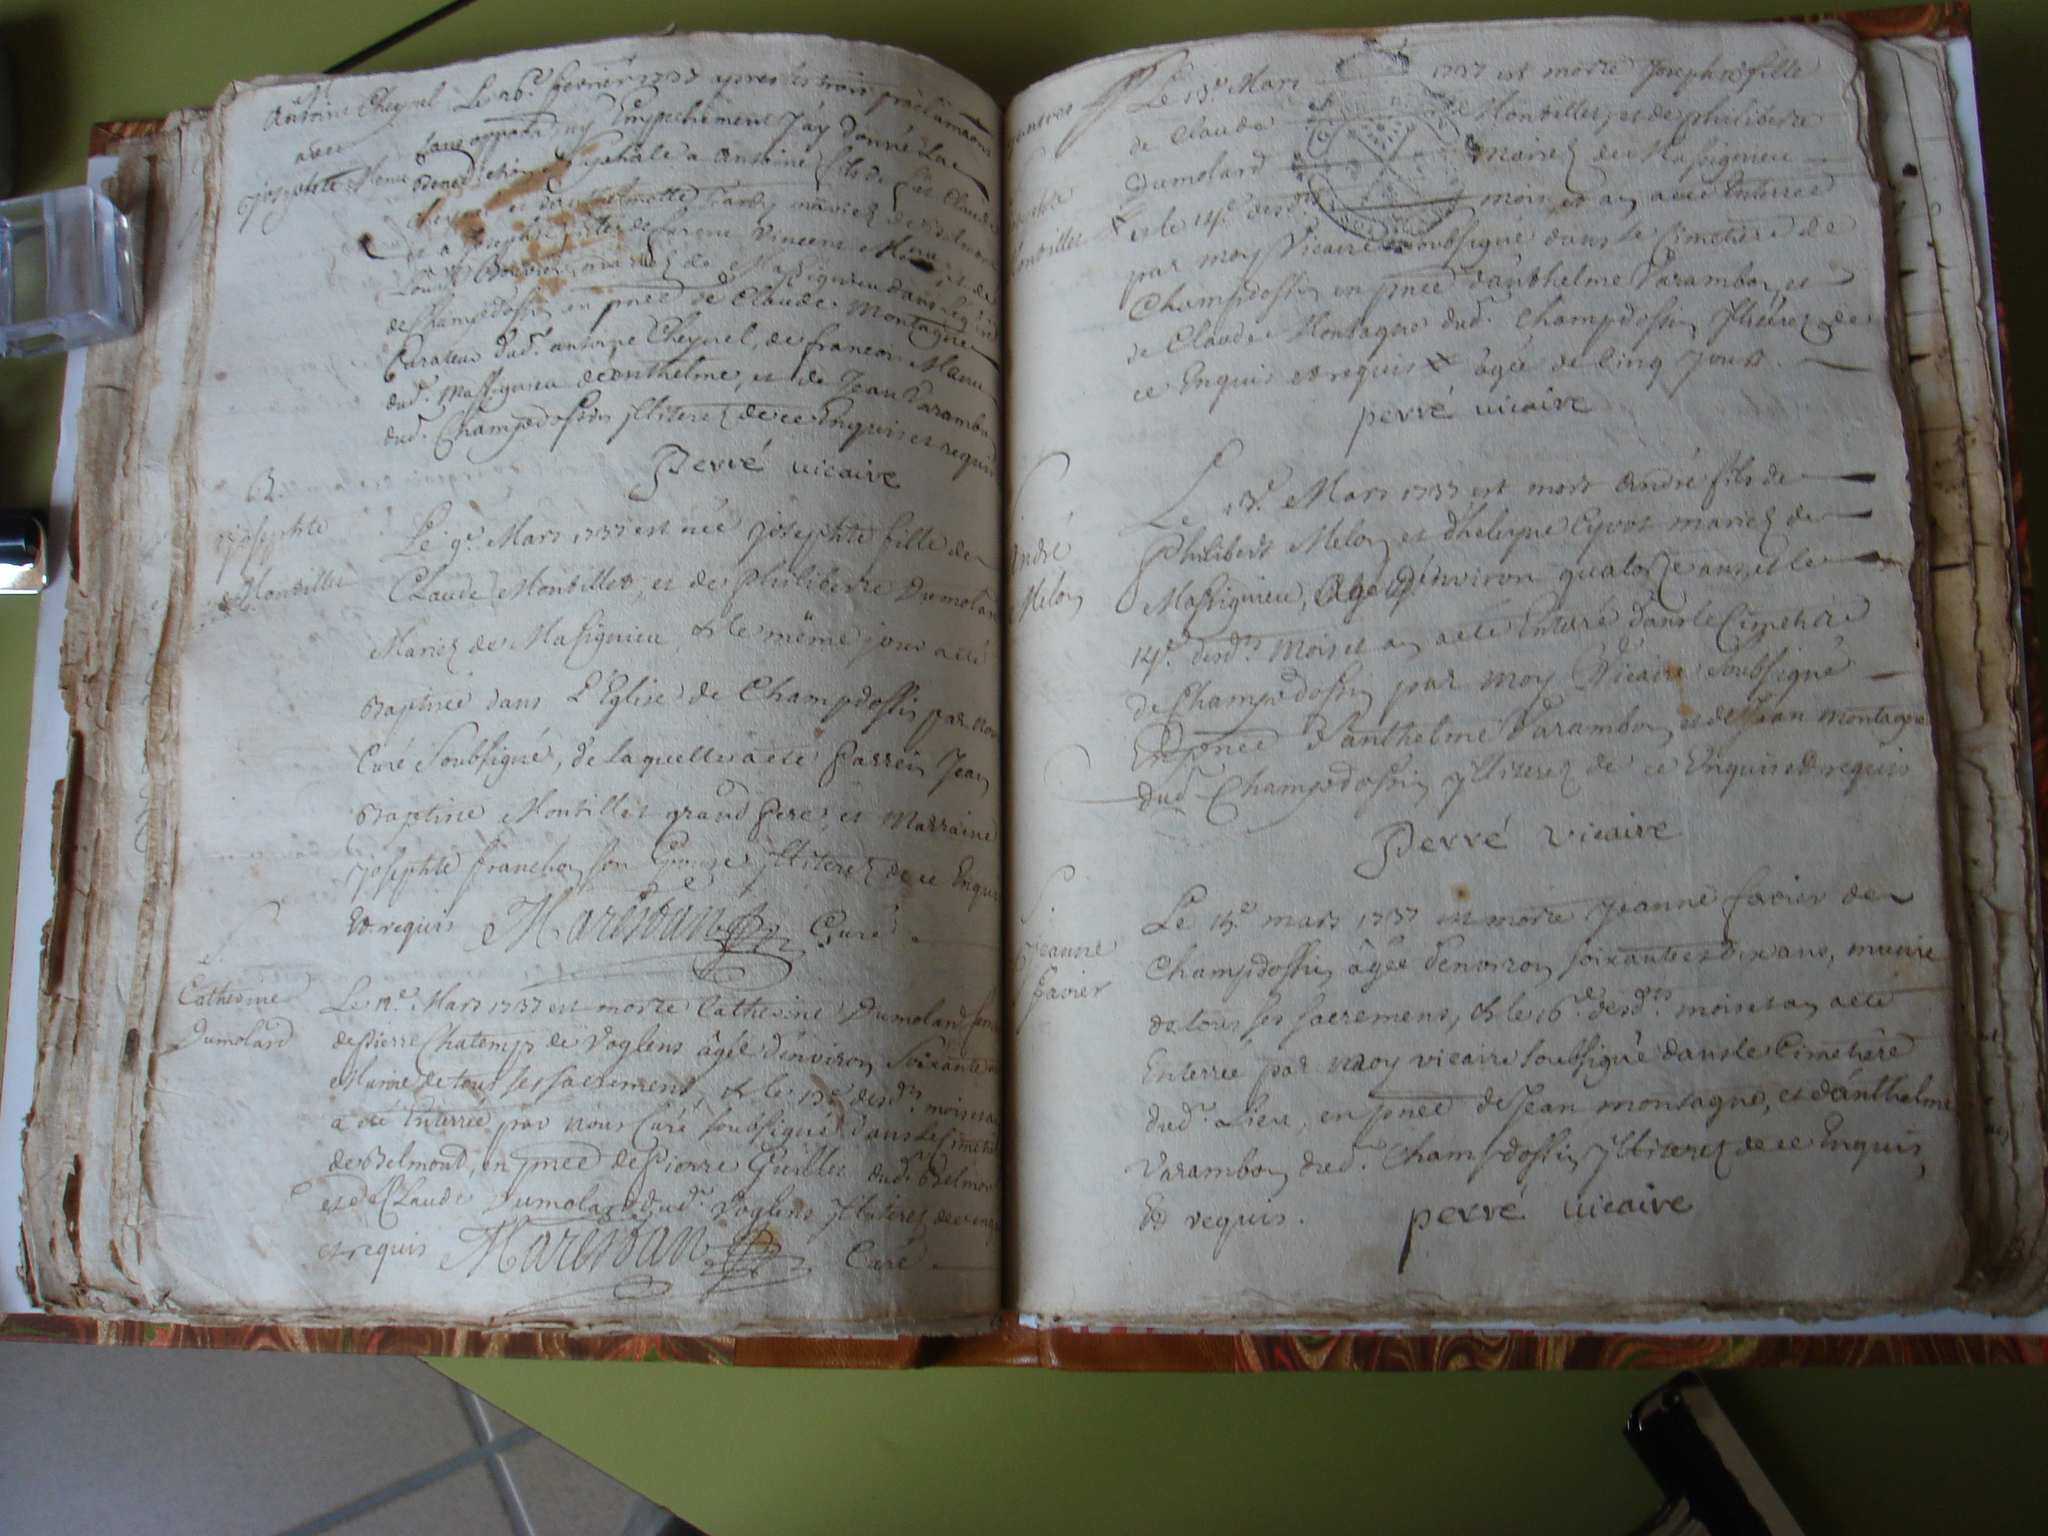 M.
Antoine Cheynel
avec
Josephte Menu
Le 26e fevrier 1737 apres les trois proclamations
sans opposition ny Empechement J'ay donné La
Benediction Nuptiale a Antoine fils de feu Claude
et a Josephte fille de Vincent Menu et de
Louise mariez de Massignieu dans l'eglise
de Champdossin en pnce de Claude Montagne
Curateur dud. antoine Cheynel, de francois Menu
dud. Massignieu d'anthelme, et de Jean Varambon
dud. Champdossin Illiterez de ce Enquis et requis
Perré vicaire
B.
Josephte
Montillet
Le 9e Mars 1737 est née Josephte fille de
Claude Montillet, et de Philiberte Dumolard
Mariez de Massignieu, & le même jour a été
Baptisée dans L'Eglise de Champdossin par nous
Curé Soubsigné, de laquelle a été Parrein Jean
Baptiste Montillet grand Pere, et Marraine
Josephte francbon son Epouse Illiterez de ce Enquis
Et requis Marestan Curé
S.
Catherine
Dumolard
Le 12e Mars 1737 est morte Catherine Dumolard femme
de Pierre Chatemps de Voglens âgée d'environ Soixante
Munie de tous ses sacremens, & le 13e desdts mois et an
a été Enterrée par nous Curé soubsigné dans le Cimetiere
de Belmont, en pnce de Pierre Guillet dud. Belmont
et de Claude Dumolard dud. Voglens Illiterez de ce enquis
et requis Marestan Curé
Josephte
Montillet
Le 13e Mars 1737 est morte Josephte fille
de Claude Montillet, et de philiberte
Dumolard mariez de Massignieu
et le 14e desdts mois, et an a eté Enterrée
par moy Vicaire soubsigné dans le Cimetiere de
Champdossin en pnce d'anthelme Varambon, et
de Claude Montagne dud. Champdossin Illiterez de
ce Enquis et requis âgée de Cinq Jours.
perré vicaire
S.
André
Melon
Le 13e Mars 1737 est mort André fils de
Philibert Melon et d'helene Cyvot mariez de
Massignieu, Agé d'environ quatorze ans, et le
14e desdts mois et an a eté Enterré dans le Cimetiere
de Champdossin par moy Vicaire Soubsigné
En pnce d'anthelme Varambon et de Jean montagne
dud. Champdossin Illiterez de ce Enquis et requis
Perré Vicaire
S.
Jeanne
Favier
Le 15e mars 1737 est morte Jeanne favier de
Champdossin âgée d'environ soixante et dix ans, munie
de tous ses sacremens, & le 16e desdts mois et an a eté
Enterrée par moy vicaire soubsigné dans le Cimetiere
dud. Lieu, en pnce de Jean montagne, et d'anthelme
Varambon dud. Champdossin Illiterez de ce Enquis,
Et requis. perré vicaire